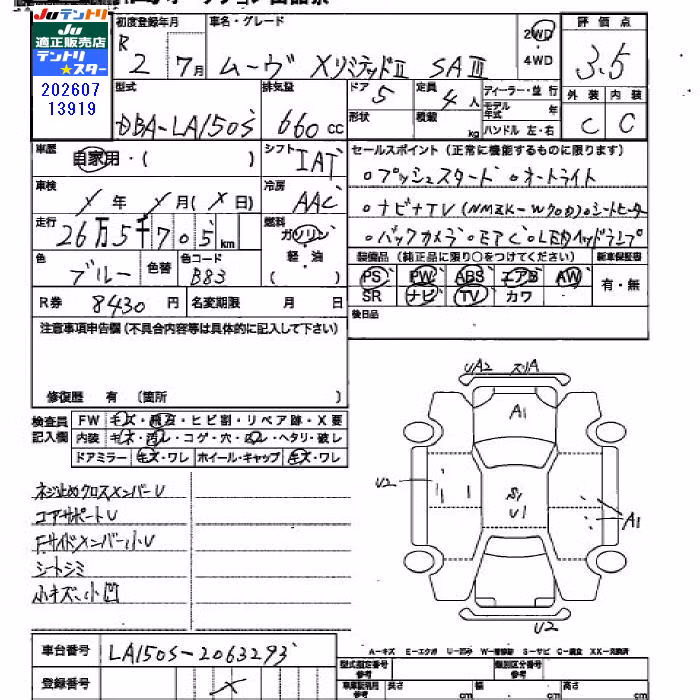 Juテントリ
JU
適正販売店
テントリ
★スター
202607
13919
初度登録年月
R 2 7月
車名・グレード
ムーヴ XリミテッドⅡ SAⅢ
2WD
・4WD
評価点
3.5
型式
DBA-LA150S
排気量
660 cc
ドア
5
形状
定員
4人
積載
kg
ディーラー・並行
モデル年式
年
ハンドル 左・右
外装
内装
C
C
車歴
自家用・( )
シフト
IAT
車検
X年 X月(X日)
冷房
AAC
走行
26万5千705km
燃料
ガソリン
・軽・油
( )
色
ブルー
色替
色コード
B83
R券
8430円
名変期限 月 日
セールスポイント(正常に機能するものに限ります)
○プッシュスタート ○オートライト
○ナビ+TV(NMZK-W70D)○シートヒーター
○バックカメラ○ETC○LEDヘッドランプ
装備品(純正品に限り○をつけてください)
新車保証書
PS PW ABS エアB AW
SR ナビ TV カワ
有・無
後日品
注意事項申告欄(不具合内容等は具体的に記入して下さい)
修復歴 有 〔箇所 〕
検査員
記入欄
FW キズ・飛石・ヒビ割・リペア跡・X要
内装 キズ・汚レ・コゲ・穴・凹レ・ヘタリ・破レ
ドアミラー キズ・ワレ ホイール・キャップ キズ・ワレ
ネジ止めクロスメンバーU
コアサポートU
Fサイドメンバー小U
シートシミ
小キズ、小凹
UA2
スリA
A1
U2
S1
U1
A1
U2
車台番号
LA150S-2063293
登録番号
X
A-キズ E-エクボ U-凹み W-補修跡 S-サビ C-腐食 XX-交換済
型式指定番号
参考
類別区分番号
参考
車庫証明用
参考
長さ cm 幅 cm 高さ cm